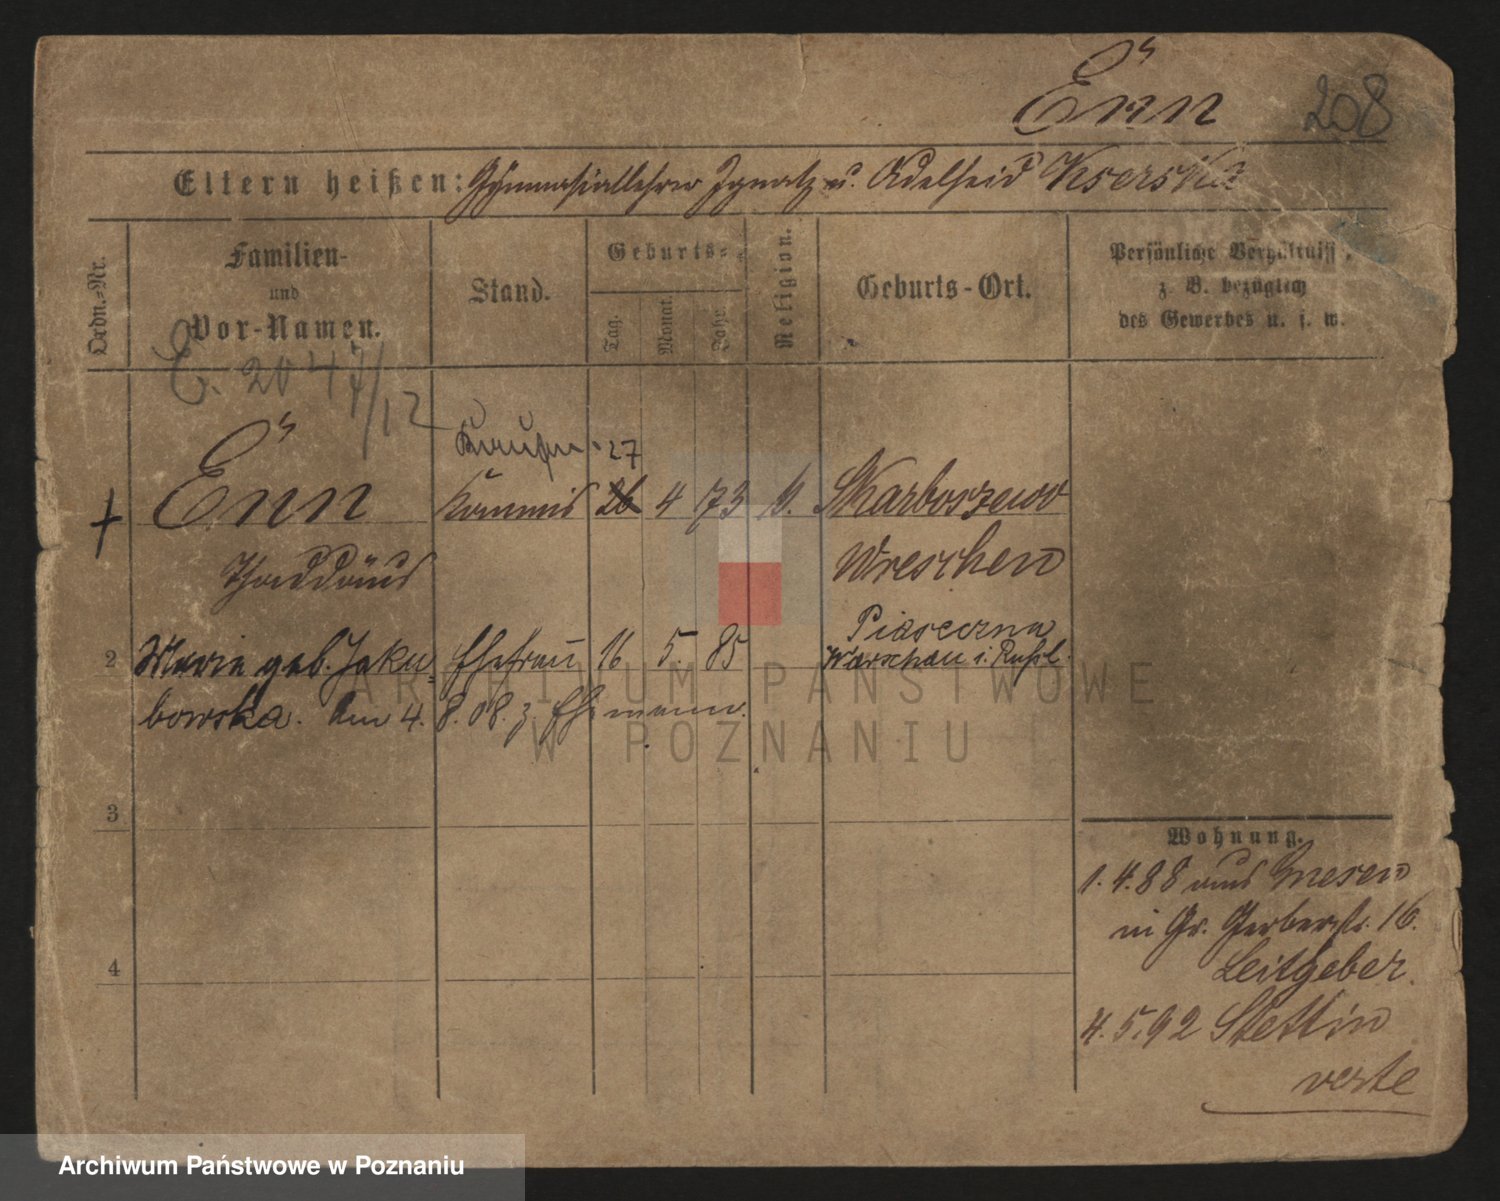 Enn
208
Eltern heißen: Gymnasiallehrer Ignatz u. Adelheid Kserska
Ordn.-Nr.
Familien-
und
Vor-Namen.
Stand.
Geburts-
Tag.
Monat.
Jahr.
Religion.
Geburts-Ort.
Persönliche Verhältnisse,
z. B. bezüglich
des Gewerbes u. s. w.
E. 2047/12
Kaufm. 27
Enn Kommis 26 4 73 Skarboszewo
Wreschen
Thaddäus
2 Marie geb. Jaku- Ehefrau 16 5. 85 Piaseczna
Warschau i. Rußl.
bowska. Am 4. 8. 08. z. Ehemann.
3
4
Wohnung.
1. 4. 88 aus Gnesen
in Gr. Gerberstr. 16.
Leitgeber.
4. 5. 92 Stettin
verte
ARCHIWUM PAŃSTWOWE
W POZNANIU
Archiwum Państwowe w Poznaniu